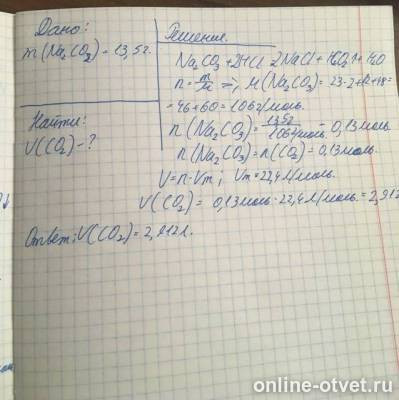 Дано:
m(Na₂CO₃) = 13,5г.
Найти:
V(CO₂) - ?
Решение.
Na₂CO₃ + 2HCl 2NaCl + CO₂↑ +
n = m/M => M(Na₂CO₃) = 23·2+12+48=
= 46+60 = 106г/моль.
n(Na₂CO₃) = 13,5г / 106г/моль = 0,13моль
n(Na₂CO₃) = n(CO₂) = 0,13моль.
V = n·Vm; Vm = 22,4л/моль
V(CO₂) = 0,13моль · 22,4л/моль. = 2,912
Ответ: V(CO₂) = 2,912л.
online-otvet.ru